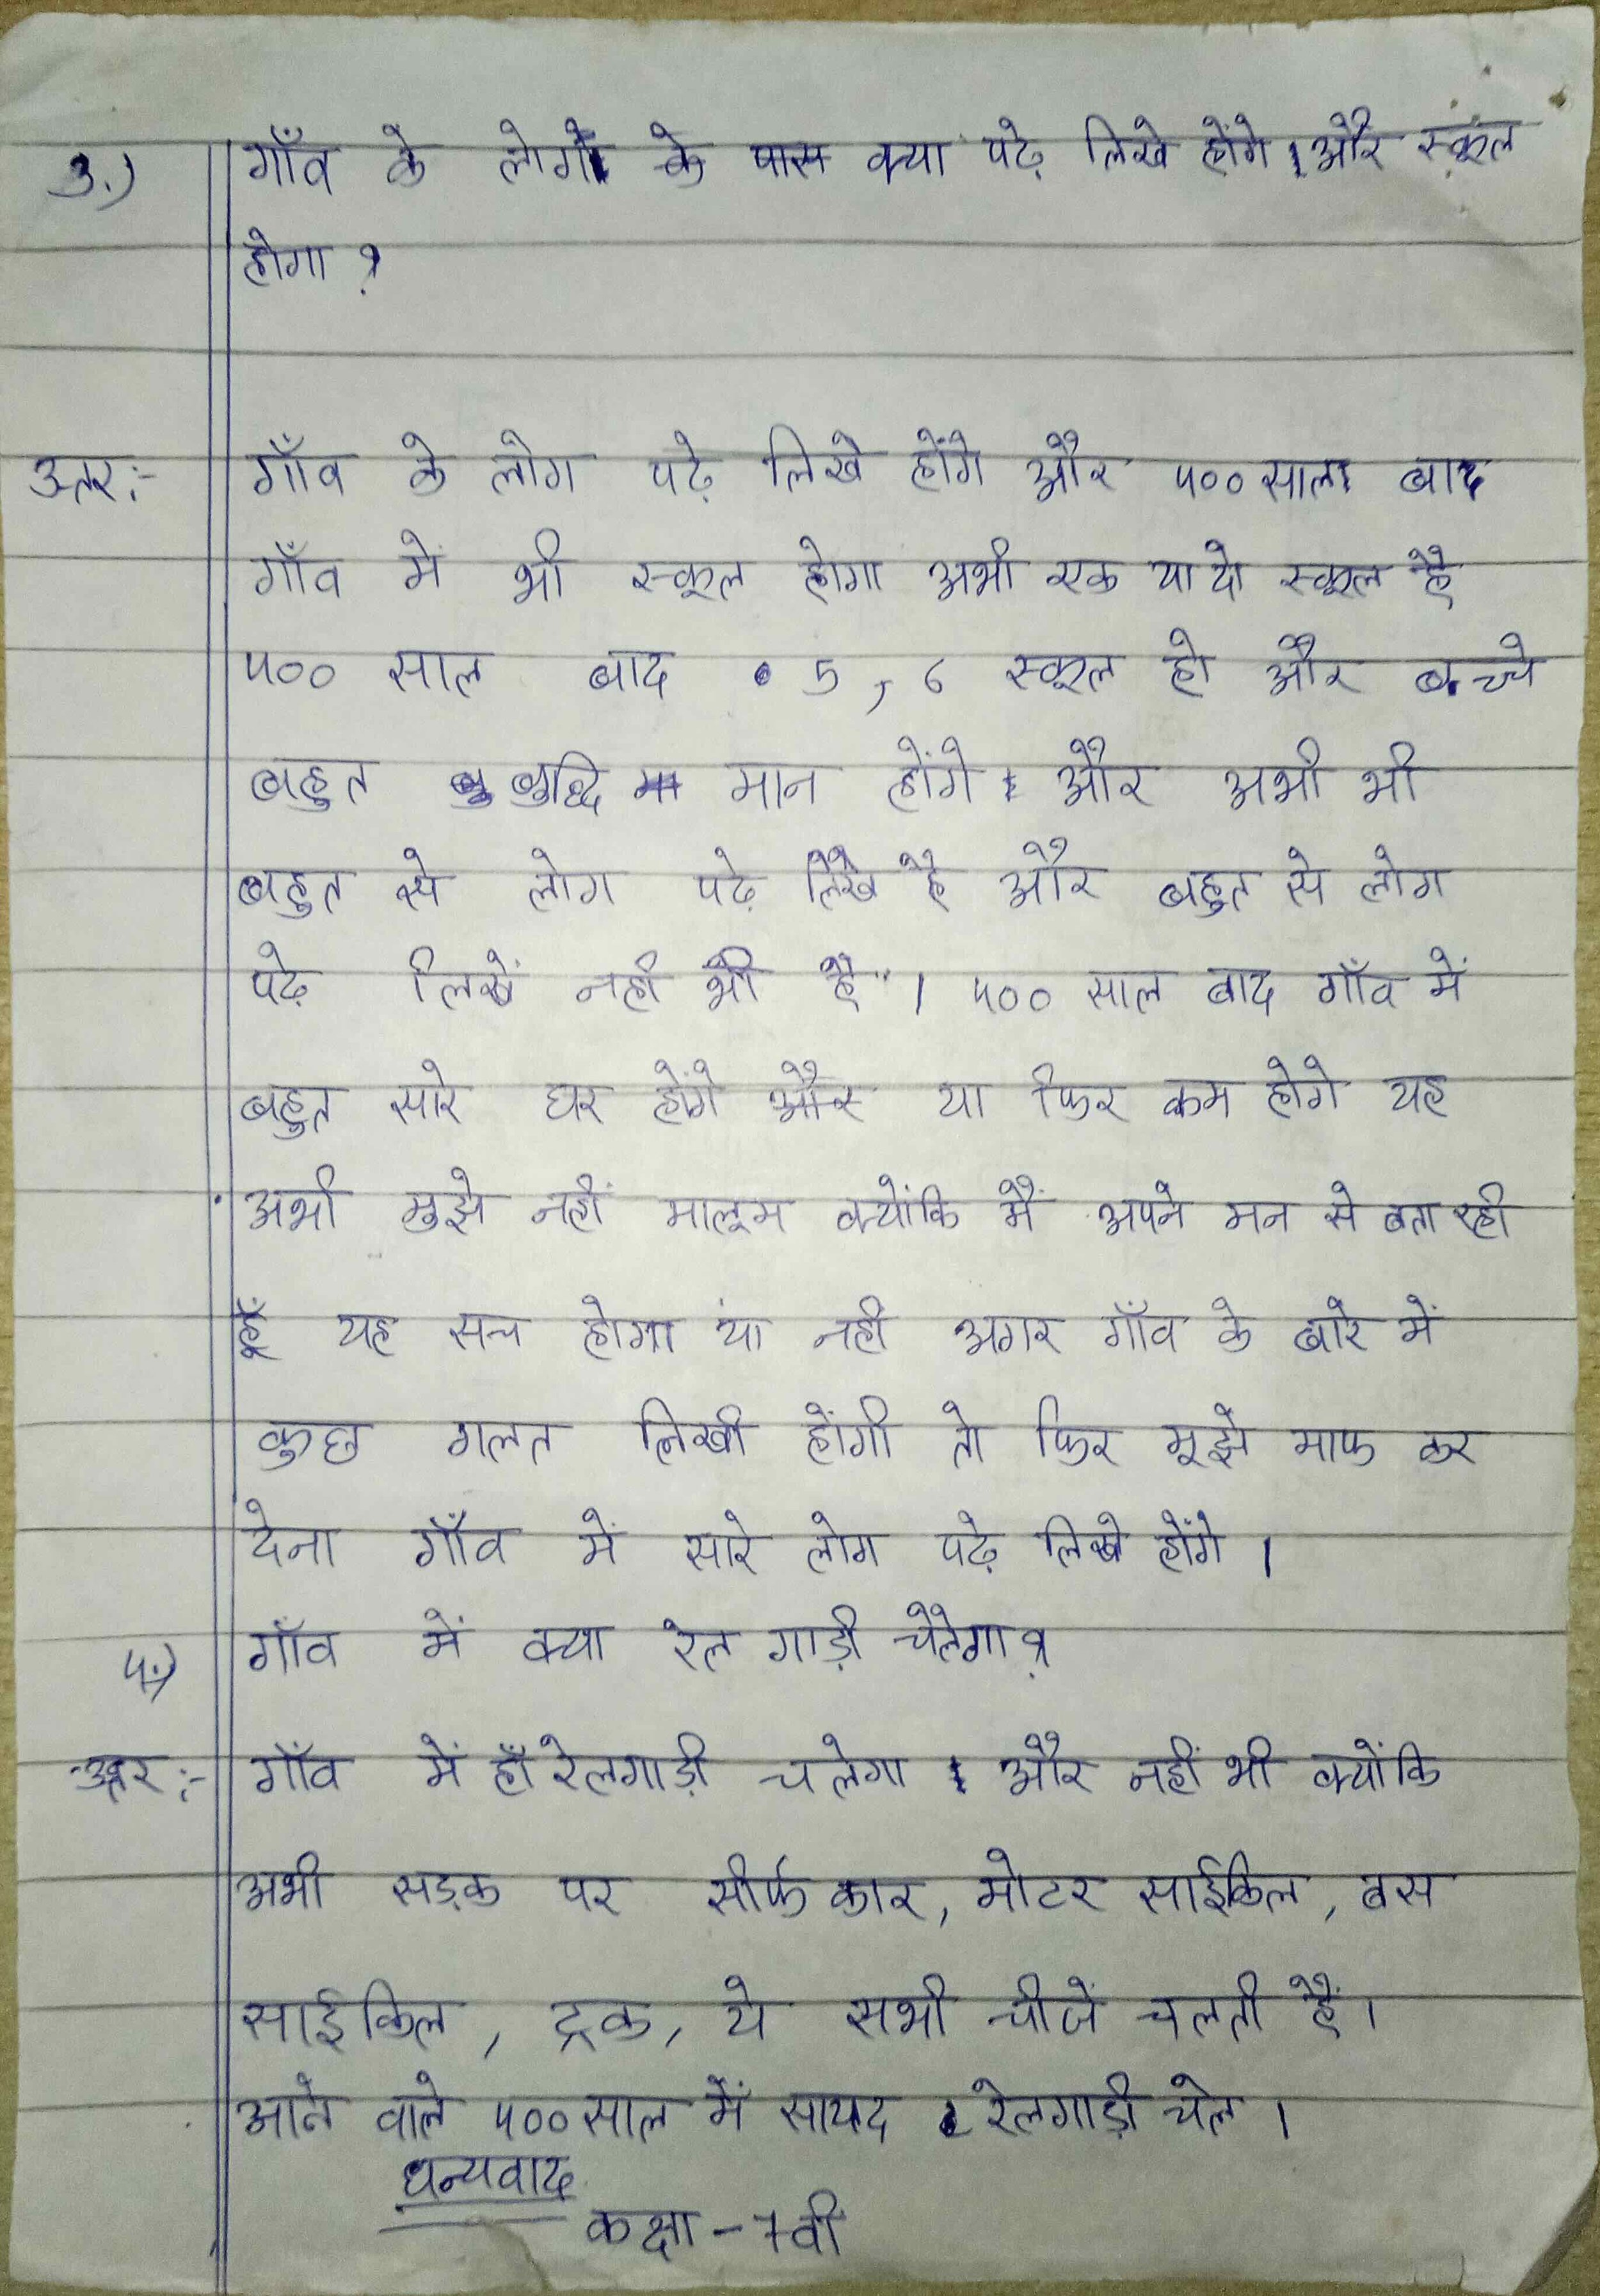 3.) गाँव के लोगो के पास क्या पढ़े लिखे होंगे और स्कूल
होगा ?
उत्तर:- गाँव के लोग पढ़े लिखे होंगे और ५०० साल बाद
गाँव में भी स्कूल होगा अभी एक या दो स्कूल है
५०० साल बाद 5, 6 स्कूल हो और बच्चे
बहुत बुद्धि मान होंगे और अभी भी
बहुत से लोग पढ़े लिखे है और बहुत से लोग
पढ़े लिखें नही भी है । ५०० साल बाद गाँव में
बहुत सारे घर होंगे और या फिर कम होगे यह
अभी मुझे नहीं मालूम क्योंकि मैं अपने मन से बता रही
हूँ यह सच होगा या नही अगर गाँव के बारे में
कुछ गलत लिखी होंगी तो फिर मूझे माफ कर
देना गाँव में सारे लोग पढ़े लिखे होंगे ।
५.) गाँव में क्या रेल गाड़ी चेलेगा ?
उत्तर:- गाँव में हाँ रेलगाड़ी चलेगा और नहीं भी क्योंकि
अभी सड़क पर सीर्फ कार, मोटर साईकिल, बस
साईकिल, ट्रक, ये सभी चीजें चलती हैं ।
आने वाले ५०० साल में सायद रेलगाड़ी चेल ।
धन्यवाद
कक्षा - 7वी